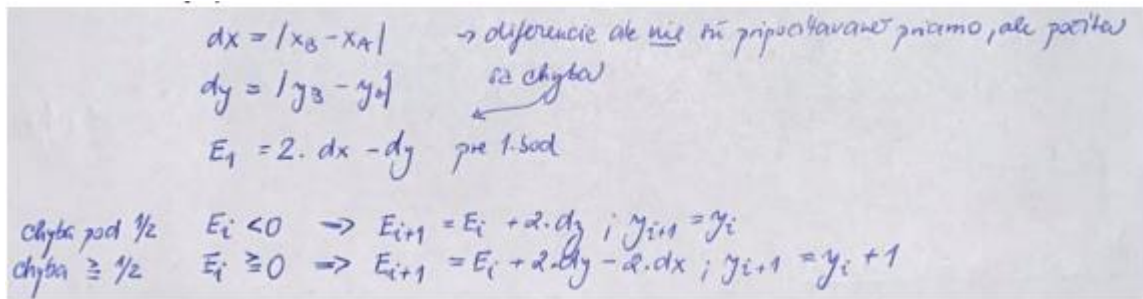 dx = |x_B - x_A| → diferencie ale nie sú pripočítavané priamo, ale počíta
sa chyba
dy = |y_B - y_A|
E_1 = 2. dx - dy pre 1. bod
chyba pod 1/2 E_i < 0 => E_{i+1} = E_i + 2.dy ; y_{i+1} = y_i
chyba ≧ 1/2 E_i ≧ 0 => E_{i+1} = E_i + 2.dy - 2.dx ; y_{i+1} = y_i + 1